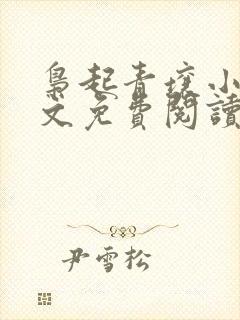 梟起青壤小
文免費閱讀
尹雪松